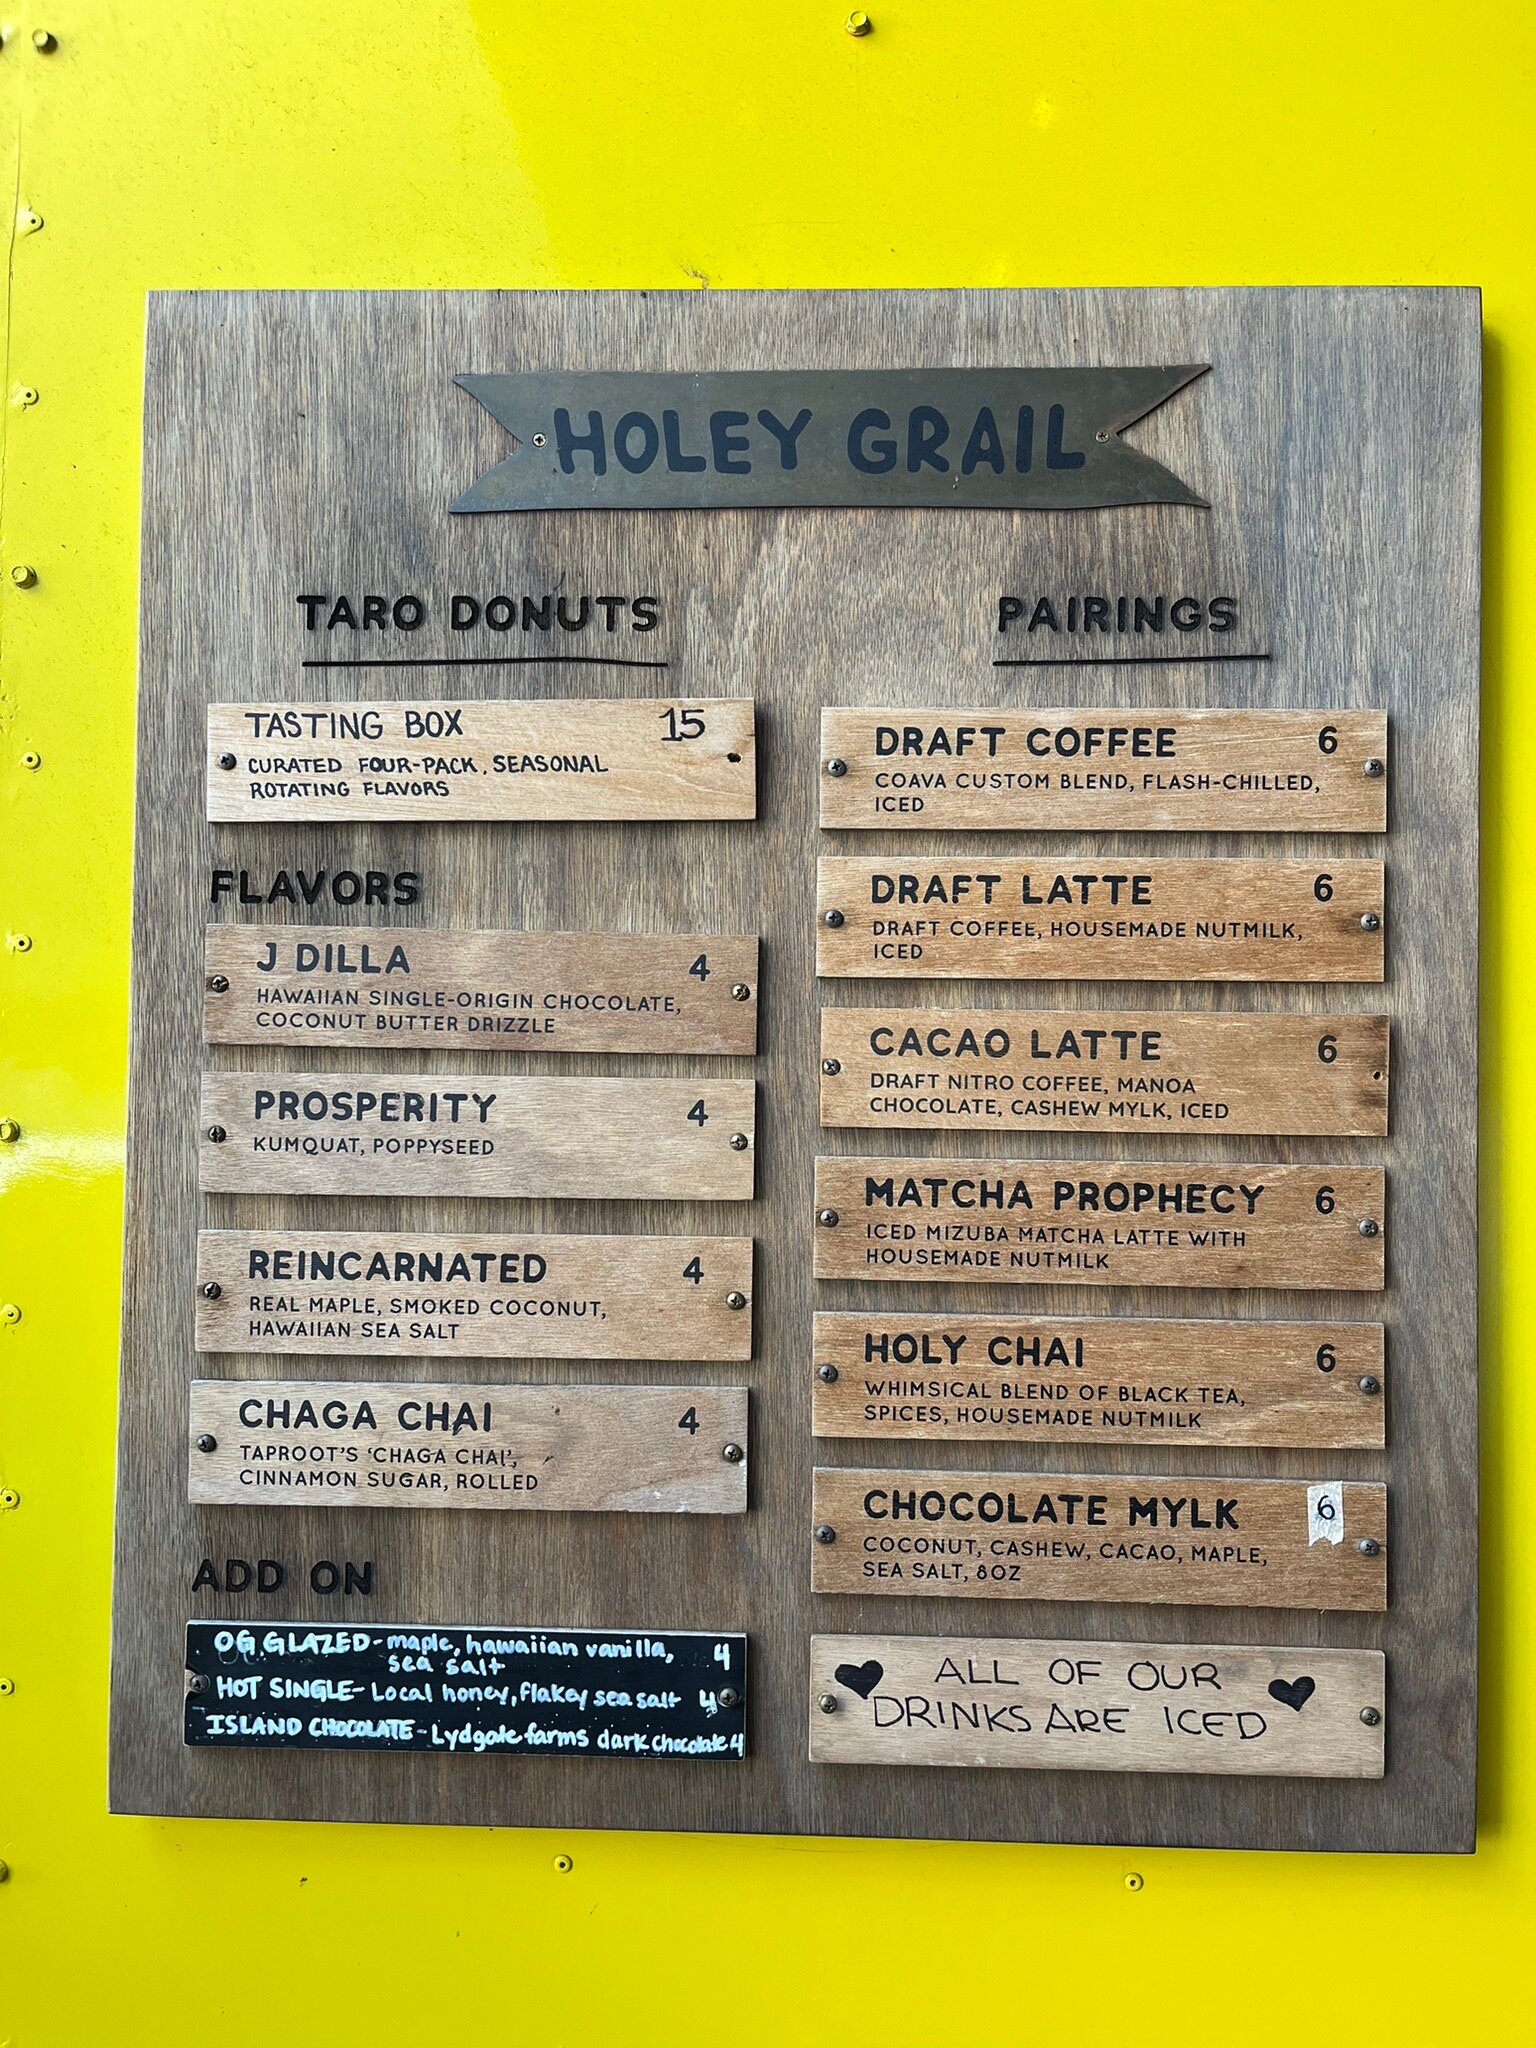 HOLEY GRAIL
TARO DONUTS
TASTING BOX 15
CURATED FOUR-PACK, SEASONAL
ROTATING FLAVORS
FLAVORS
J DILLA 4
HAWAIIAN SINGLE-ORIGIN CHOCOLATE,
COCONUT BUTTER DRIZZLE
PROSPERITY 4
KUMQUAT, POPPYSEED
REINCARNATED 4
REAL MAPLE, SMOKED COCONUT,
HAWAIIAN SEA SALT
CHAGA CHAI 4
TAPROOT'S 'CHAGA CHAI',
CINNAMON SUGAR, ROLLED
ADD ON
OG GLAZED - maple, hawaiian vanilla, 4
sea salt
HOT SINGLE - Local honey, flakey sea salt 4
ISLAND CHOCOLATE - Lydgate farms dark chocolate 4
PAIRINGS
DRAFT COFFEE 6
COAVA CUSTOM BLEND, FLASH-CHILLED,
ICED
DRAFT LATTE 6
DRAFT COFFEE, HOUSEMADE NUTMILK,
ICED
CACAO LATTE 6
DRAFT NITRO COFFEE, MANOA
CHOCOLATE, CASHEW MYLK, ICED
MATCHA PROPHECY 6
ICED MIZUBA MATCHA LATTE WITH
HOUSEMADE NUTMILK
HOLY CHAI 6
WHIMSICAL BLEND OF BLACK TEA,
SPICES, HOUSEMADE NUTMILK
CHOCOLATE MYLK 6
COCONUT, CASHEW, CACAO, MAPLE,
SEA SALT, 8OZ
ALL OF OUR
DRINKS ARE ICED